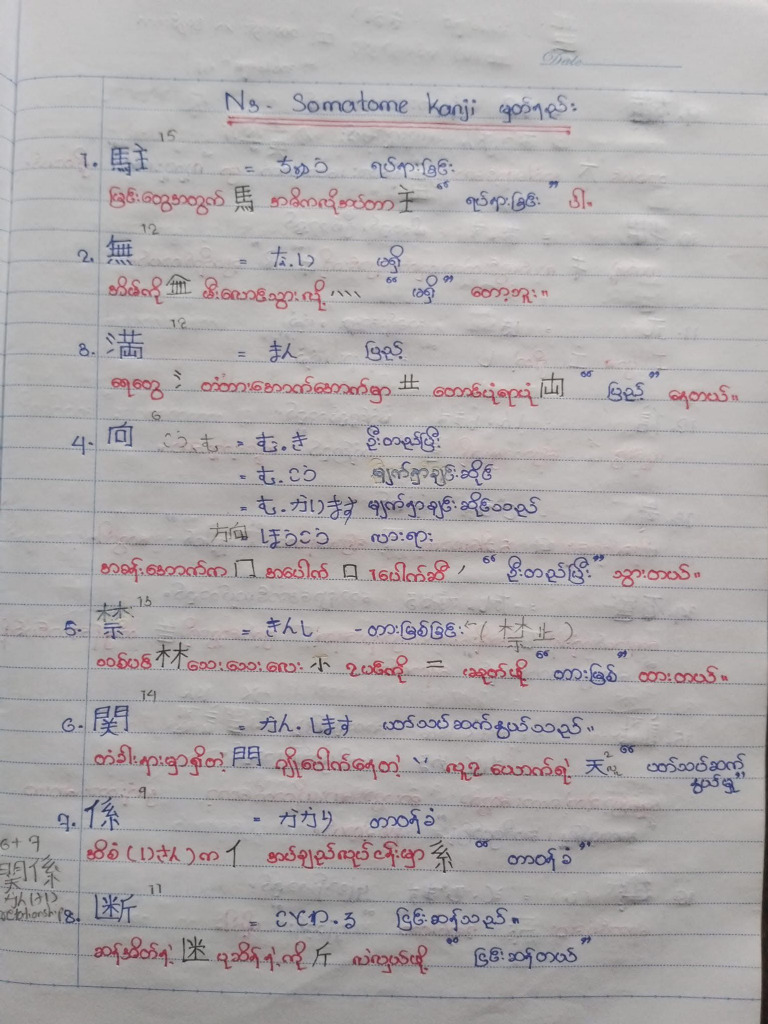 Date
N3. Somatome Kanji မှတ်ရည်း
1. 駐 15 = ちゅう ရပ်နားခြင်း
မြင်းတွေအတွက် 馬 အဓိကလိုအပ်တာ 主 “ ရပ်နားခြင်း ” ပါ။
2. 無 12 = な.い မရှိ
အိမ်ကို 無 မီးလောင်သွားလို့ 灬 “ မရှိ ” တော့ဘူး။
3. 満 12 = まん ပြည့်
ရေတွေ 氵 တံတားအောက်အောက်မှာ 艹 တောင်ပုံရာပုံ 山 “ ပြည့် ” နေတယ်။
4. 向 6 こう、む = む.き ဦးတည်ပြီး
= む.こう မျက်နှာချင်းဆိုင်
= む.かいます မျက်နှာချင်းဆိုင်သည်
方向 ほうこう လားရာ
အခန်းအောက်က 冂 အပေါက် 口 ၁ပေါက်ဆီ ノ “ ဦးတည်ပြီး ” သွားတယ်။
5. 禁 13 = きんし - တားမြစ်ခြင်း (禁止)
သစ်ပင် 林 သေးသေးလေး 小 ၃ပင်ကို 二 မခုတ်ဖို့ “ တားမြစ် ” ထားတယ်။
6. 関 14 = かん.します ပတ်သပ်ဆက်နွယ်သည်။
တံခါးနားမှာရှိတဲ့ 門 ချိုပေါက်နေတဲ့ ソ လူ ၃ ယောက်ရဲ့ 天 “ ပတ်သပ်ဆက်နွယ်မှု ”
7. 係 9 = かかり တာဝန်ခံ
အိစံ (1)さん) က イ အပ်ချည်လုပ်ငန်းမှာ 系 “ တာဝန်ခံ ”
6 + 9
関係
relationship
8. 断 11 = ことわ.る ငြင်းဆန်သည်။
ဆန်အိတ်ရဲ့ 米 ပုဆိန်ရဲ့ကို 斤 လဲလှယ်ဖို့ “ ငြင်းဆန်တယ် ”